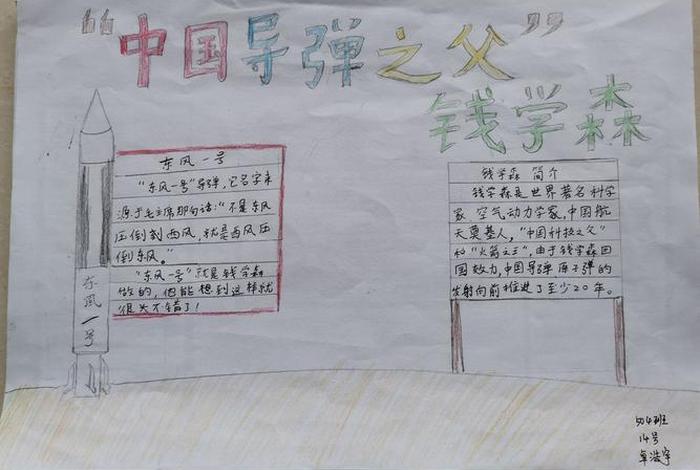 “中国导弹之父”
钱学森
东风一号
“东风一号”导弹,它名字来
源于毛主席那句话:“不是东风
压倒西风,就是西风压
倒东风。”
“东风一号”就是钱学森
做的,他能想到这样就
很大不错了!
东风一号
钱学森 简介
钱学森是世界著名科学
家 空气动力学家,中国航
天奠基人,“中国科技之父”
和“火箭之王”,由于钱学森回
国效力,中国导弹 原子弹的
发射向前推进了至少20年。
504班
14号
卓浩宇